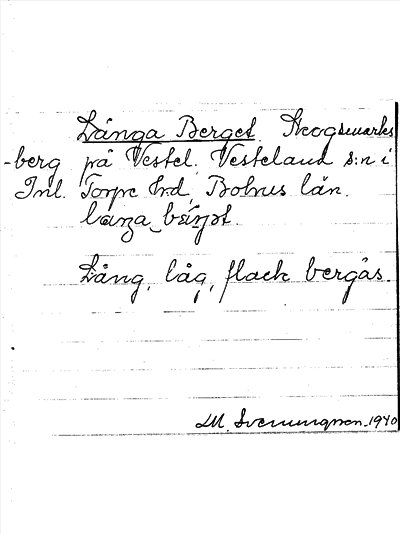 Långa Berget. Skogsmarks
-berg på Vestel. Vesteland s:n i
Inl. Torpe hrd, Bohus län.
Lång, låg, flack bergås.
M. Svenungsson. 1940